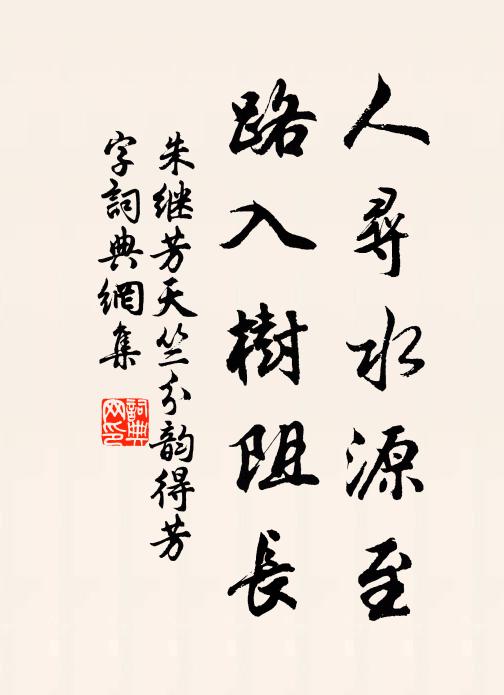 人尋水源至
路入樹阻長
朱继芳天竺分韵得芳
字詞典網集
詞典
网印